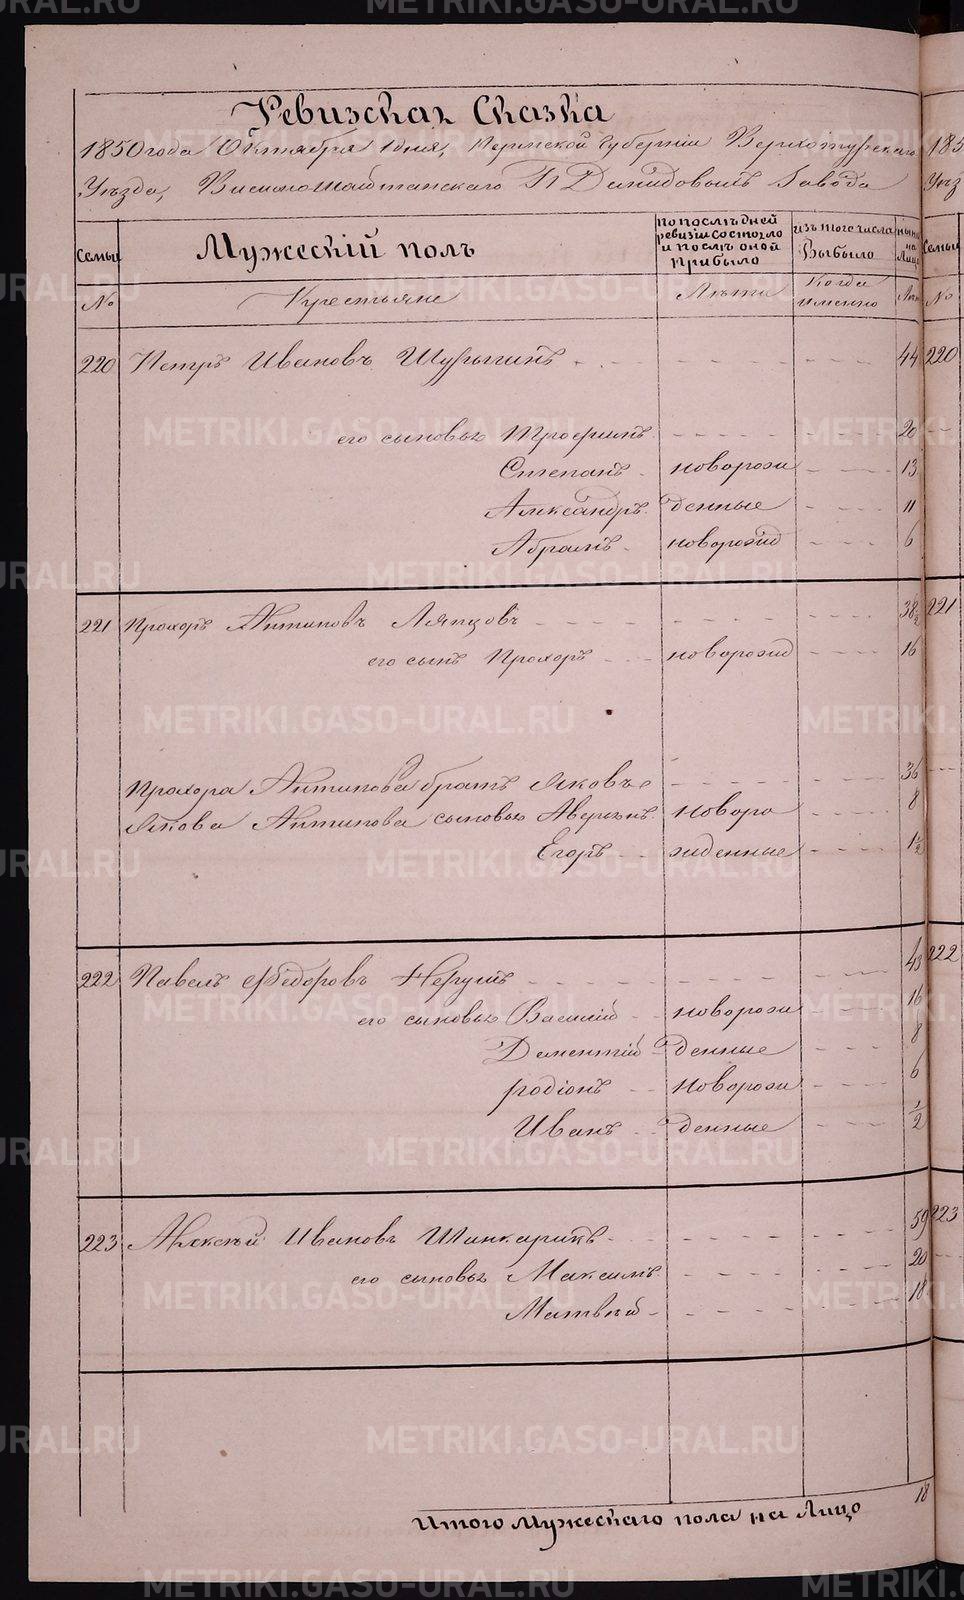 Ревизская Сказка
1850 года Октября 1 дня, Пермской Губернiи Верхотурскаго
Уѣзда, Висимошайтанскаго Г. Демидовыхъ Завода
Семьи Мужескiй полъ
по послѣдней ревизiи состояло и послѣ оной прибыло
изъ того числа Выбыло
нынѣ на Лицо
№ Крестьяне Лѣта Когда именно Лѣта
220 Петръ Ивановъ 44 220
его сыновья Трофимъ 20
Степанъ новорож 13
Александръ денные 11
Абрамъ новорожд 6
221 Прохоръ Антиповъ Ляпцовъ 38½ 221
его сынъ Прохоръ новорожд 16
Прохора Антипова братъ Яковъ 36
Якова Антипова сыновья Аверкiй новоро 8
Егоръ жденные 1½
222 Павелъ Ѳедоровъ 43 222
его сыновья Василiй новорож 16
Дементiй денные 8
Родiонъ новорож 6
Иванъ денные ½
223 Алексѣй Ивановъ Шинкаринъ 59 223
его сыновья Максимъ 20
Матвѣй 18
Итого мужескаго пола на Лицо 18
METRIKI.GASO-URAL.RU